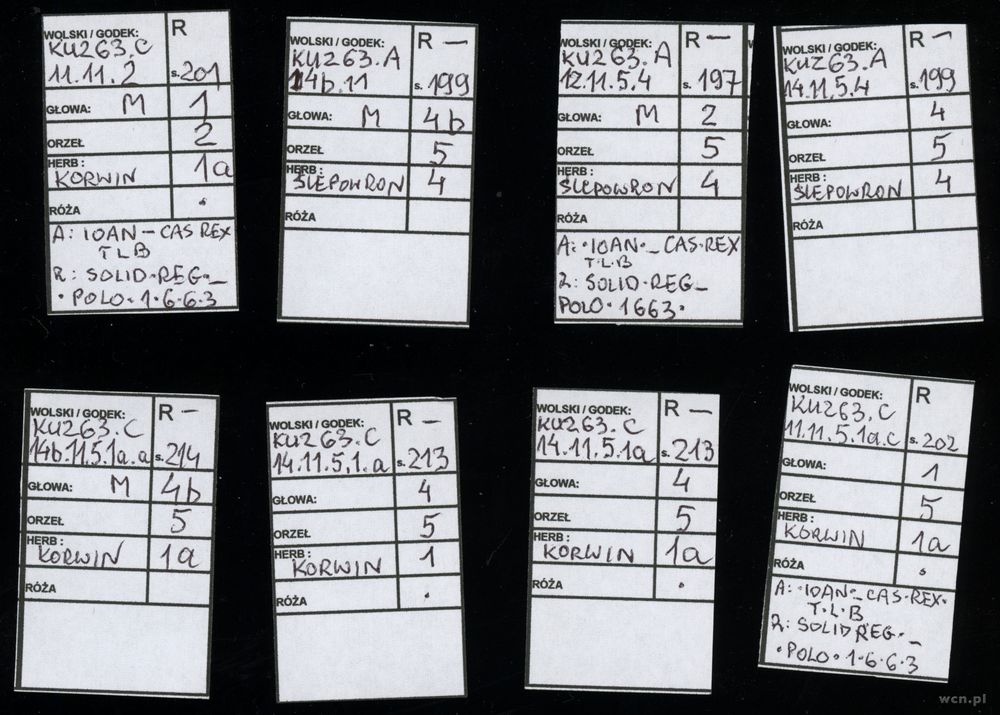 WOLSKI / GODEK: R
KU263.C
11.11.2 s.201
GŁOWA: M 1
ORZEŁ 2
HERB: KORWIN 1a
RÓŻA .
A: IOAN – CAS REX
TLB
R: SOLID·REG·_
· POLO·1·6·6·3
WOLSKI / GODEK: R —
KU263.A
14b.11 s.199
GŁOWA: M 4b
ORZEŁ 5
HERB: ŚLEPOWRON 4
RÓŻA
WOLSKI / GODEK: R —
KU263.A
12.11.5.4 s.197
GŁOWA: M 2
ORZEŁ 5
HERB: ŚLEPOWRON 4
RÓŻA
A:·IOAN·_ CAS·REX
T·L·B
R: SOLID·REG_
POLO·1663·
WOLSKI / GODEK: R —
KU263.A
14.11.5.4 s.199
GŁOWA: 4
ORZEŁ 5
HERB: ŚLEPOWRON 4
RÓŻA
WOLSKI / GODEK: R —
KU263.C
14b.11.5.1a.a s.214
GŁOWA: M 4b
ORZEŁ 5
HERB: KORWIN 1a
RÓŻA
WOLSKI / GODEK: R —
KU263.C
14.11.5.1.a s.213
GŁOWA: 4
ORZEŁ 5
HERB: KORWIN 1
RÓŻA .
WOLSKI / GODEK: R —
KU263.C
14.11.5.1a s.213
GŁOWA: 4
ORZEŁ 5
HERB: KORWIN 1a
RÓŻA .
WOLSKI / GODEK: R
KU263.C
11.11.5.1a.c s.202
GŁOWA: 1
ORZEŁ 5
HERB: KORWIN 1a
RÓŻA .
A:·IOAN·_CAS·REX·
T·L·B
R: SOLID REG·_
·POLO·1·6·6·3
wcn.pl